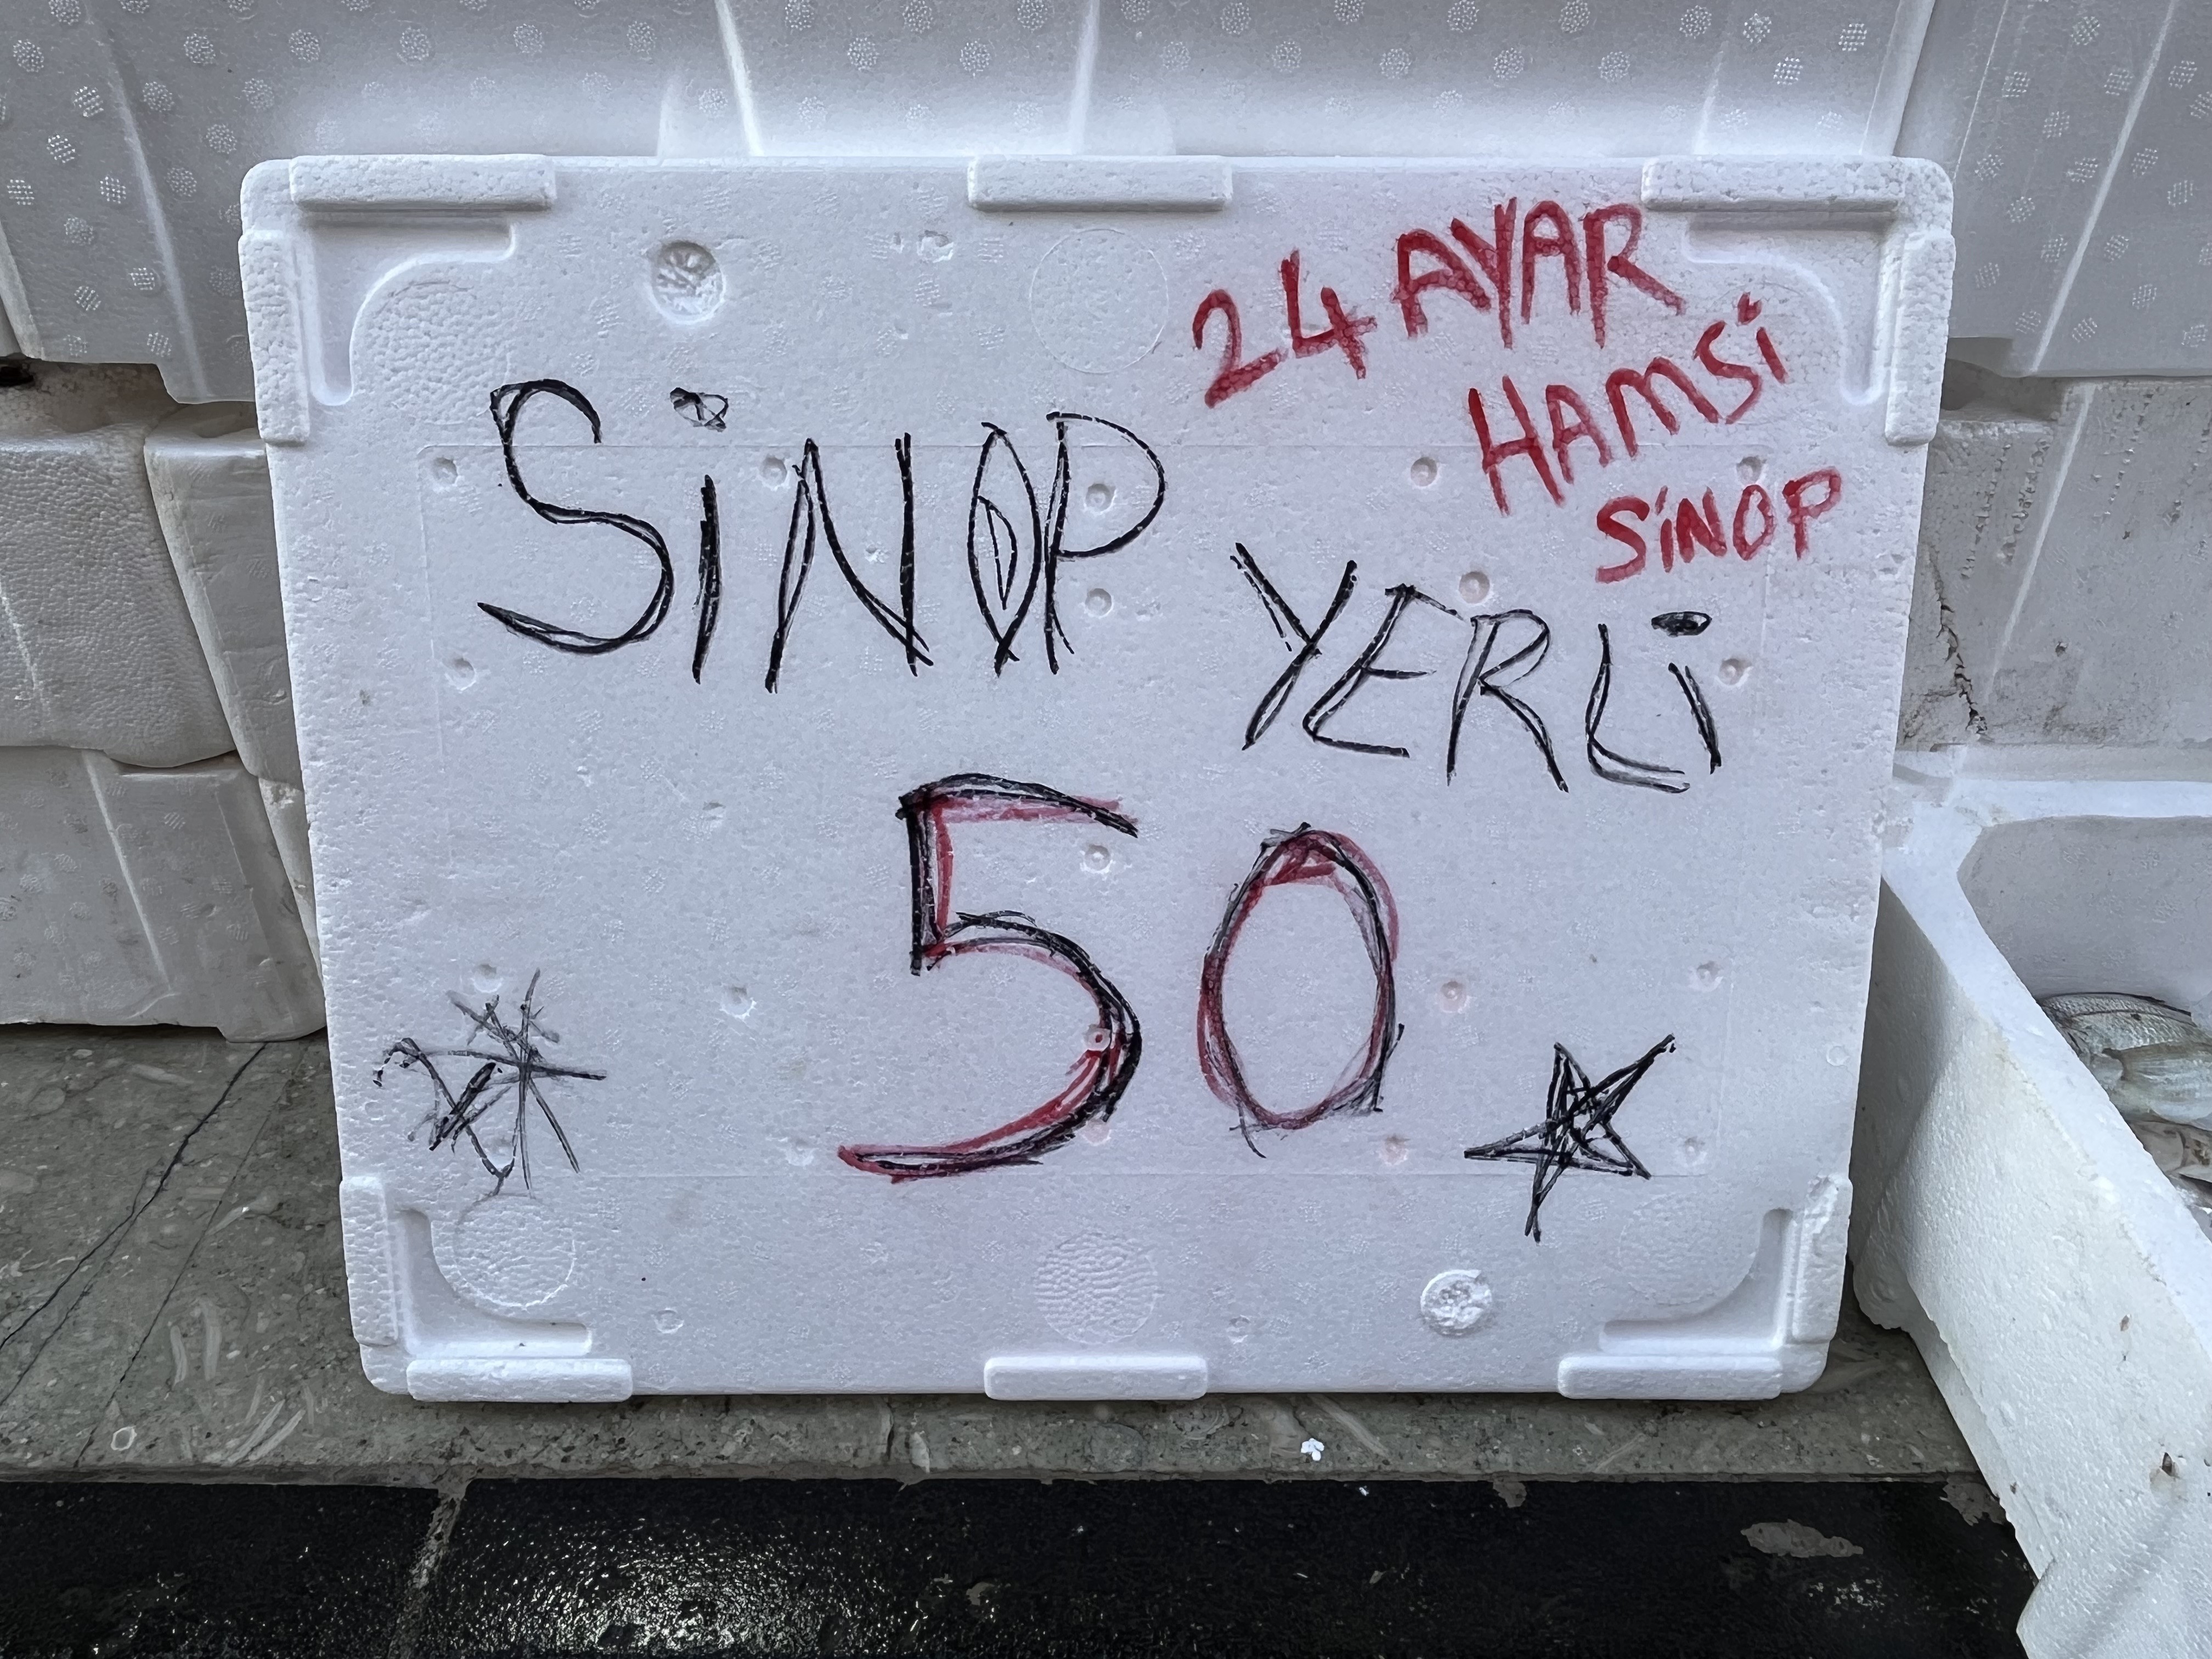 24 AYAR
HAMSİ
SİNOP
SİNOP
YERLİ
50